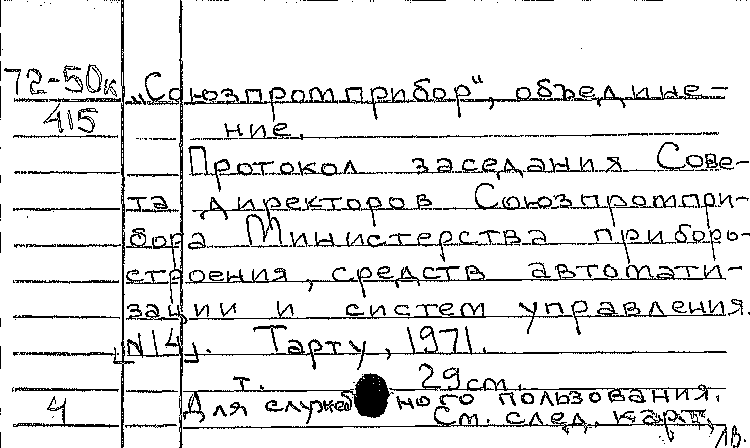 72-50к „Союзпромприбор“, объедине-
415 ние.
Протокол заседания Сове-
та директоров Союзпромпри-
бора Министерства приборо-
строения, средств автомати-
зации и систем управления.
[N14]. Тарту, 1971.
т. 29см.
4 Для служебного пользования.
См. след. карт.